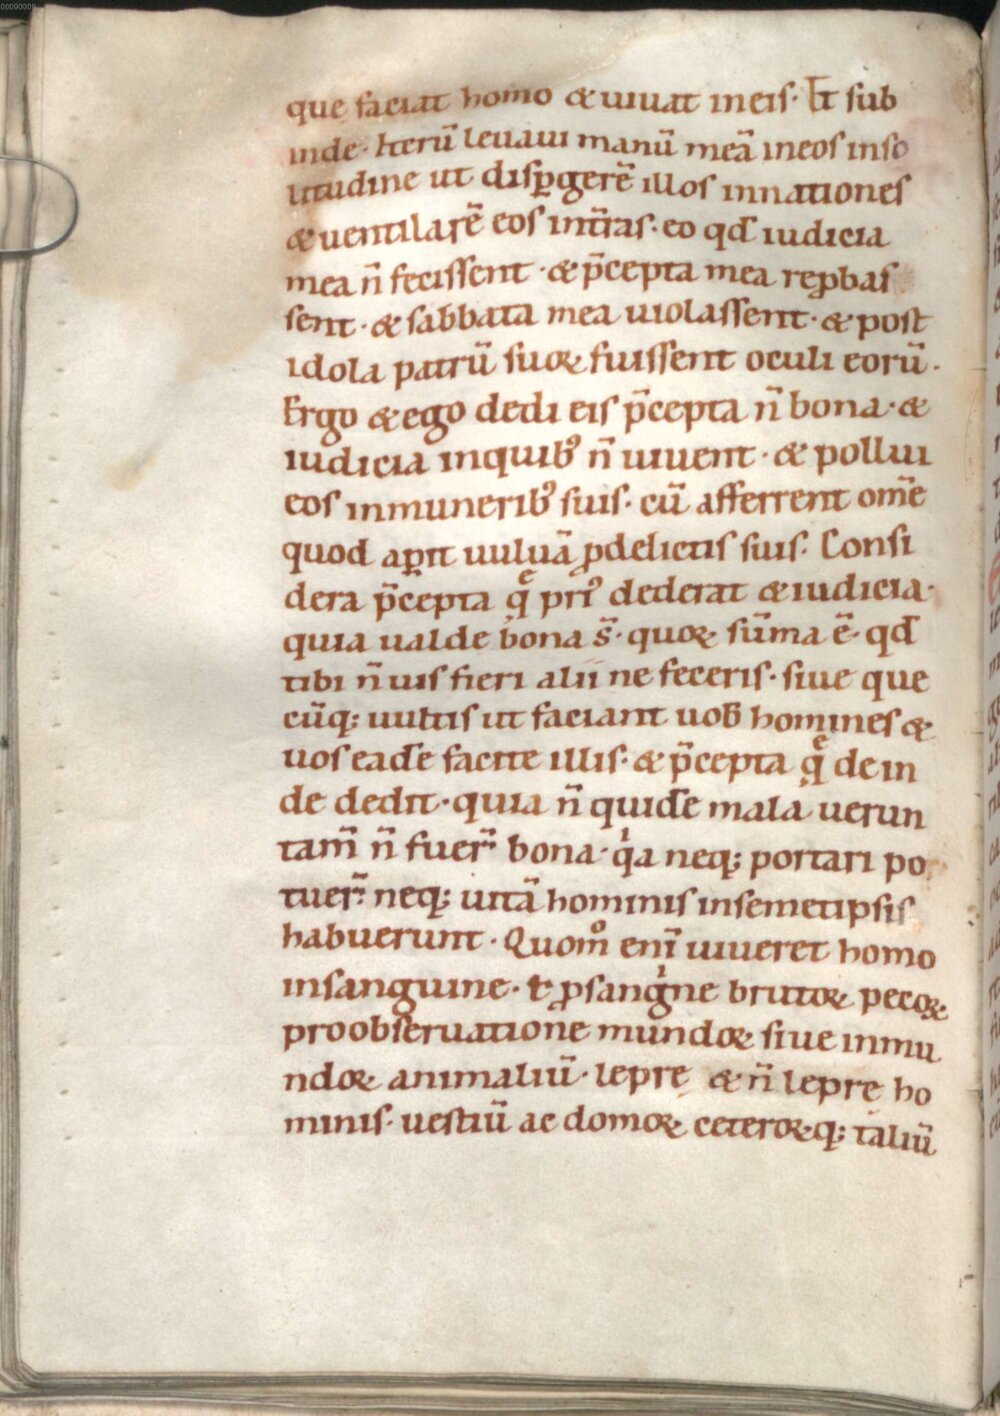 00090009
que faciat homo & uiuat ineis· Et sub
inde· Iterū leuaui manū meā ineos inso
litudine ut disꝑgerē illos innationes
& uentilarē eos intr̄as· eo qđ iudicia
mea n̄ fecissent · & p̄cepta mea reꝓbas
sent · & sabbata mea uiolassent· & post
idola patrū suoꝝ fuissent oculi eorū ·
Ergo & ego dedi eis p̄cepta n̄ bona· &
iudicia inquib᾿ n̄ uiuent · & pollui
eos inmunerib᾿ suis· cū afferrent om̄e
quod aꝑit uuluā ꝓdelictis suis· Consi
dera p̄cepta q̨ͤ pri᾿ dederat & iudicia·
quia ualde bona s̄· quoꝝ sūma ē· qđ
tibi n̄ uis fieri alii ne feceris· siue que
cūq; uultis ut faciant uob̄ homines &
uos eadē facite illis· & p̄cepta q̨ͤ dein
de dedit· quia n̄ quidē mala uerun
tam̄ n̄ fuer̄ bona· qͥa neq; portari po
tuer̄· neq; uitā hominis insemetipsis
habuerunt · Quom̊ eni̅ uiueret homo
insanguine · ł ꝓsangͥne brutoꝝ pecoꝝ
proobseruatione mundoꝝ siue inmu
ndoꝝ animaliū· leprę & n̄ leprę ho
minis· uestiū ac domoꝝ ceteroꝝq; taliū